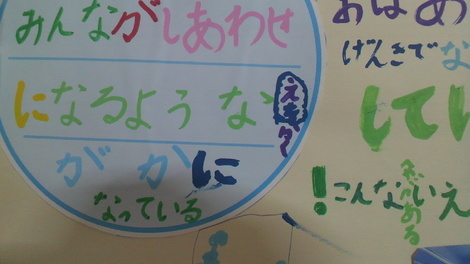 みんながしあわせ
になるような
がかに
なっている
おばあ
げんきでな
してい
！こんないえ